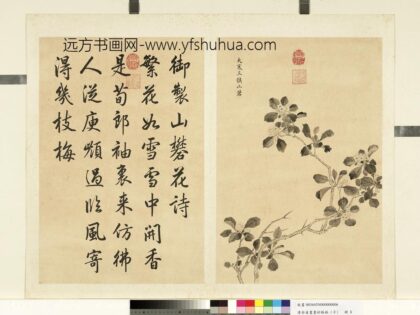 远方书画网-www.yfshuhua.com
大寒三候山礬
御製山礬花詩
繁花如雪雪中開香
是荀郎袖裏来仿彿
人從庾嶺過臨風寄
得幾枝梅